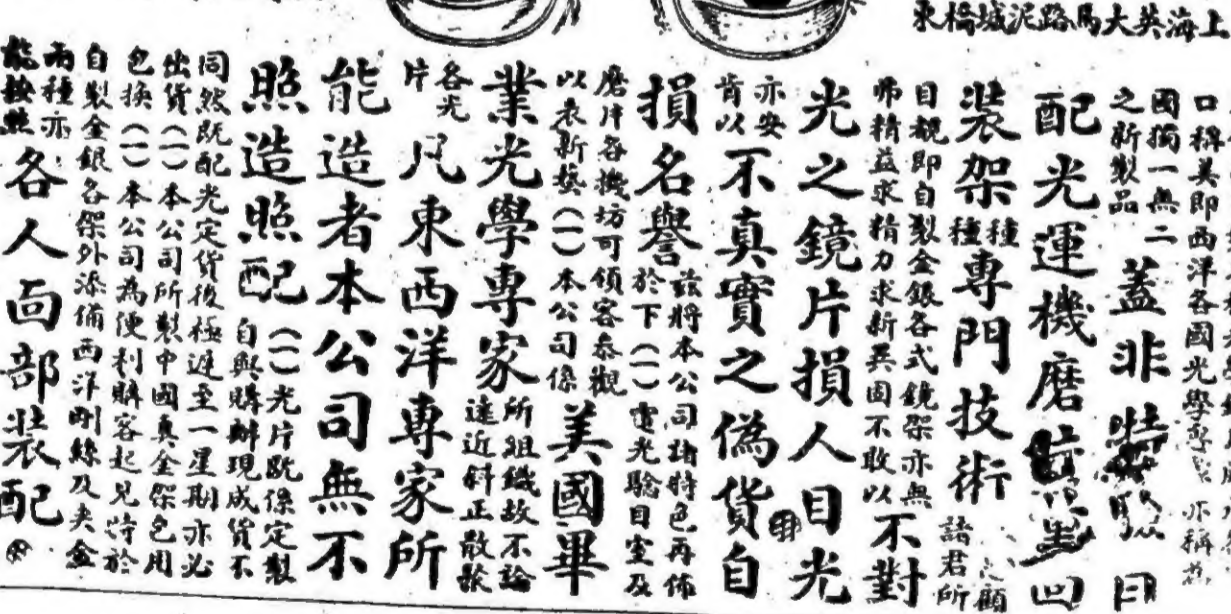 上海英大馬路泥城橋東
口稱美即西洋各國光學專 亦稱為
國獨一無二
之新製品
蓋非 目
配光運機磨
裝架種種專門技術
諸君所
顧
目覩即自製金銀各式鏡架亦無
弗精益求精力求新異固不敢以
不對
光之鏡片損人目光
亦安
肯以
不真實之偽貨自
損名譽
茲將本公司諸特色再佈
於下(一)電光驗目室及
磨片各機坊可領客叅觀
以表新藝(一)本公司係
美國畢
業光學專家
所組織故不論
遠近斜正散發
各光
片
凡東西洋專家所
能造者本公司無不
照造照配
(一)光片既係定製
自與購辦現成貨不
同然既配光定貨後極遲至一星期亦必
出貨(一)本公司所製中國真金架包用
包換(一)本公司為便利購客起見特於
自製金銀各架外添備西洋剛絲及夾金
兩種亦
能按照
各人面部裝配